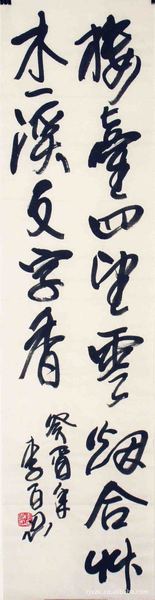 楼臺四望雲烟合艸
木一溪文字香
癸酉年
李百忍